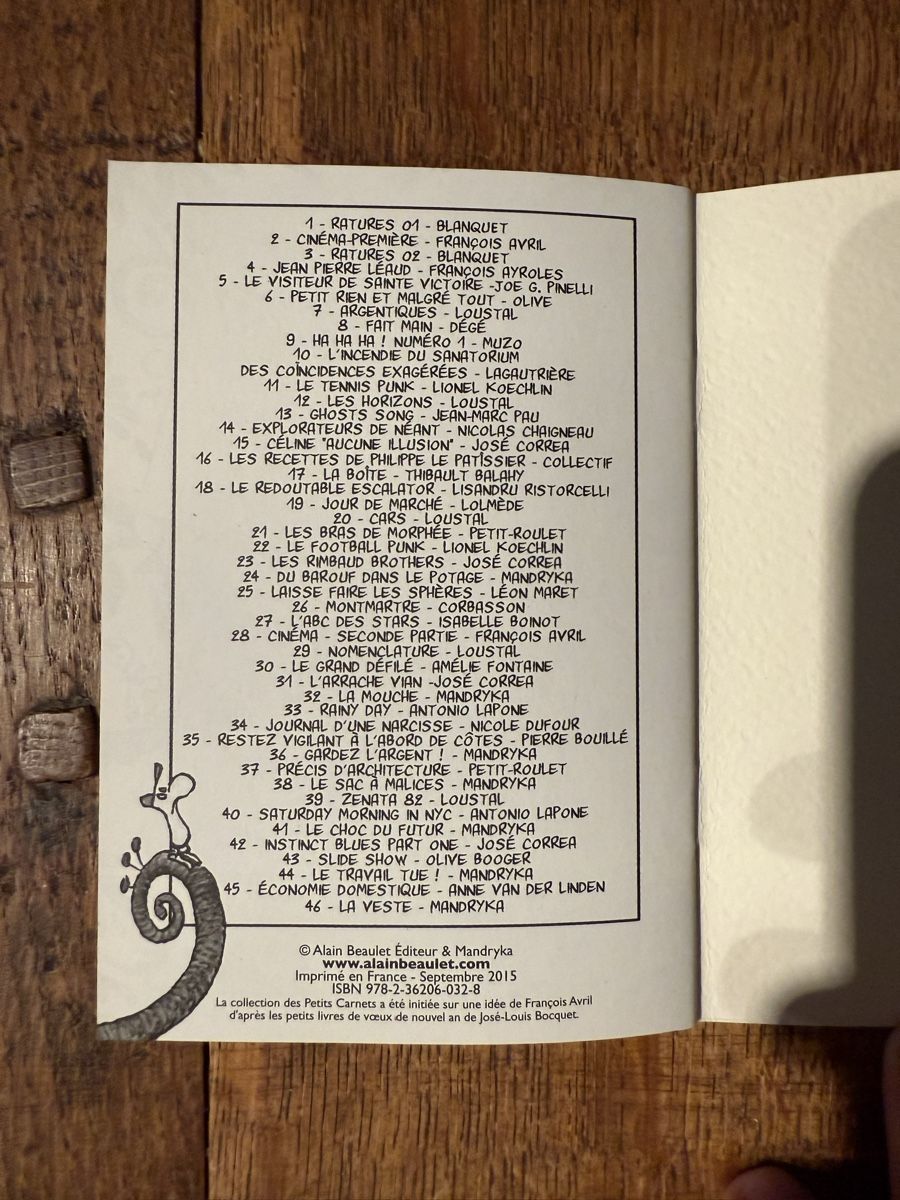 1 - RATURES 01 - BLANQUET
2 - CINÉMA-PREMIÈRE - FRANÇOIS AVRIL
3 - RATURES 02 - BLANQUET
4 - JEAN PIERRE LÉAUD - FRANÇOIS AYROLES
5 - LE VISITEUR DE SAINTE VICTOIRE -JOE G. PINELLI
6 - PETIT RIEN ET MALGRÉ TOUT - OLIVE
7 - ARGENTIQUES - LOUSTAL
8 - FAIT MAIN - DÉGÉ
9 - HA HA HA ! NUMÉRO 1 - MUZO
10 - L'INCENDIE DU SANATORIUM
DES COÏNCIDENCES EXAGÉRÉES - LAGAUTRIÈRE
11 - LE TENNIS PUNK - LIONEL KOECHLIN
12 - LES HORIZONS - LOUSTAL
13 - GHOSTS SONG - JEAN-MARC PAU
14 - EXPLORATEURS DE NÉANT - NICOLAS CHAIGNEAU
15 - CÉLINE "AUCUNE ILLUSION" - JOSÉ CORREA
16 - LES RECETTES DE PHILIPPE LE PATÎSSIER - COLLECTIF
17 - LA BOÎTE - THIBAULT BALAHY
18 - LE REDOUTABLE ESCALATOR - LISANDRU RISTORCELLI
19 - JOUR DE MARCHÉ - LOLMÈDE
20 - CARS - LOUSTAL
21 - LES BRAS DE MORPHÉE - PETIT-ROULET
22 - LE FOOTBALL PUNK - LIONEL KOECHLIN
23 - LES RIMBAUD BROTHERS - JOSÉ CORREA
24 - DU BAROUF DANS LE POTAGE - MANDRYKA
25 - LAISSE FAIRE LES SPHÈRES - LÉON MARET
26 - MONTMARTRE - CORBASSON
27 - L'ABC DES STARS - ISABELLE BOINOT
28 - CINÉMA - SECONDE PARTIE - FRANÇOIS AVRIL
29 - NOMENCLATURE - LOUSTAL
30 - LE GRAND DÉFILÉ - AMÉLIE FONTAINE
31 - L'ARRACHE VIAN -JOSÉ CORREA
32 - LA MOUCHE - MANDRYKA
33 - RAINY DAY - ANTONIO LAPONE
34 - JOURNAL D'UNE NARCISSE - NICOLE DUFOUR
35 - RESTEZ VIGILANT À L'ABORD DE CÔTES - PIERRE BOUILLÉ
36 - GARDEZ L'ARGENT ! - MANDRYKA
37 - PRÉCIS D'ARCHITECTURE - PETIT-ROULET
38 - LE SAC À MALICES - MANDRYKA
39 - ZENATA 82 - LOUSTAL
40 - SATURDAY MORNING IN NYC - ANTONIO LAPONE
41 - LE CHOC DU FUTUR - MANDRYKA
42 - INSTINCT BLUES PART ONE - JOSÉ CORREA
43 - SLIDE SHOW - OLIVE BOOGER
44 - LE TRAVAIL TUE ! - MANDRYKA
45 - ÉCONOMIE DOMESTIQUE - ANNE VAN DER LINDEN
46 - LA VESTE - MANDRYKA
© Alain Beaulet Éditeur & Mandryka
www.alainbeaulet.com
Imprimé en France - Septembre 2015
ISBN 978-2-36206-032-8
La collection des Petits Carnets a été initiée sur une idée de François Avril
d'après les petits livres de vœux de nouvel an de José-Louis Bocquet.